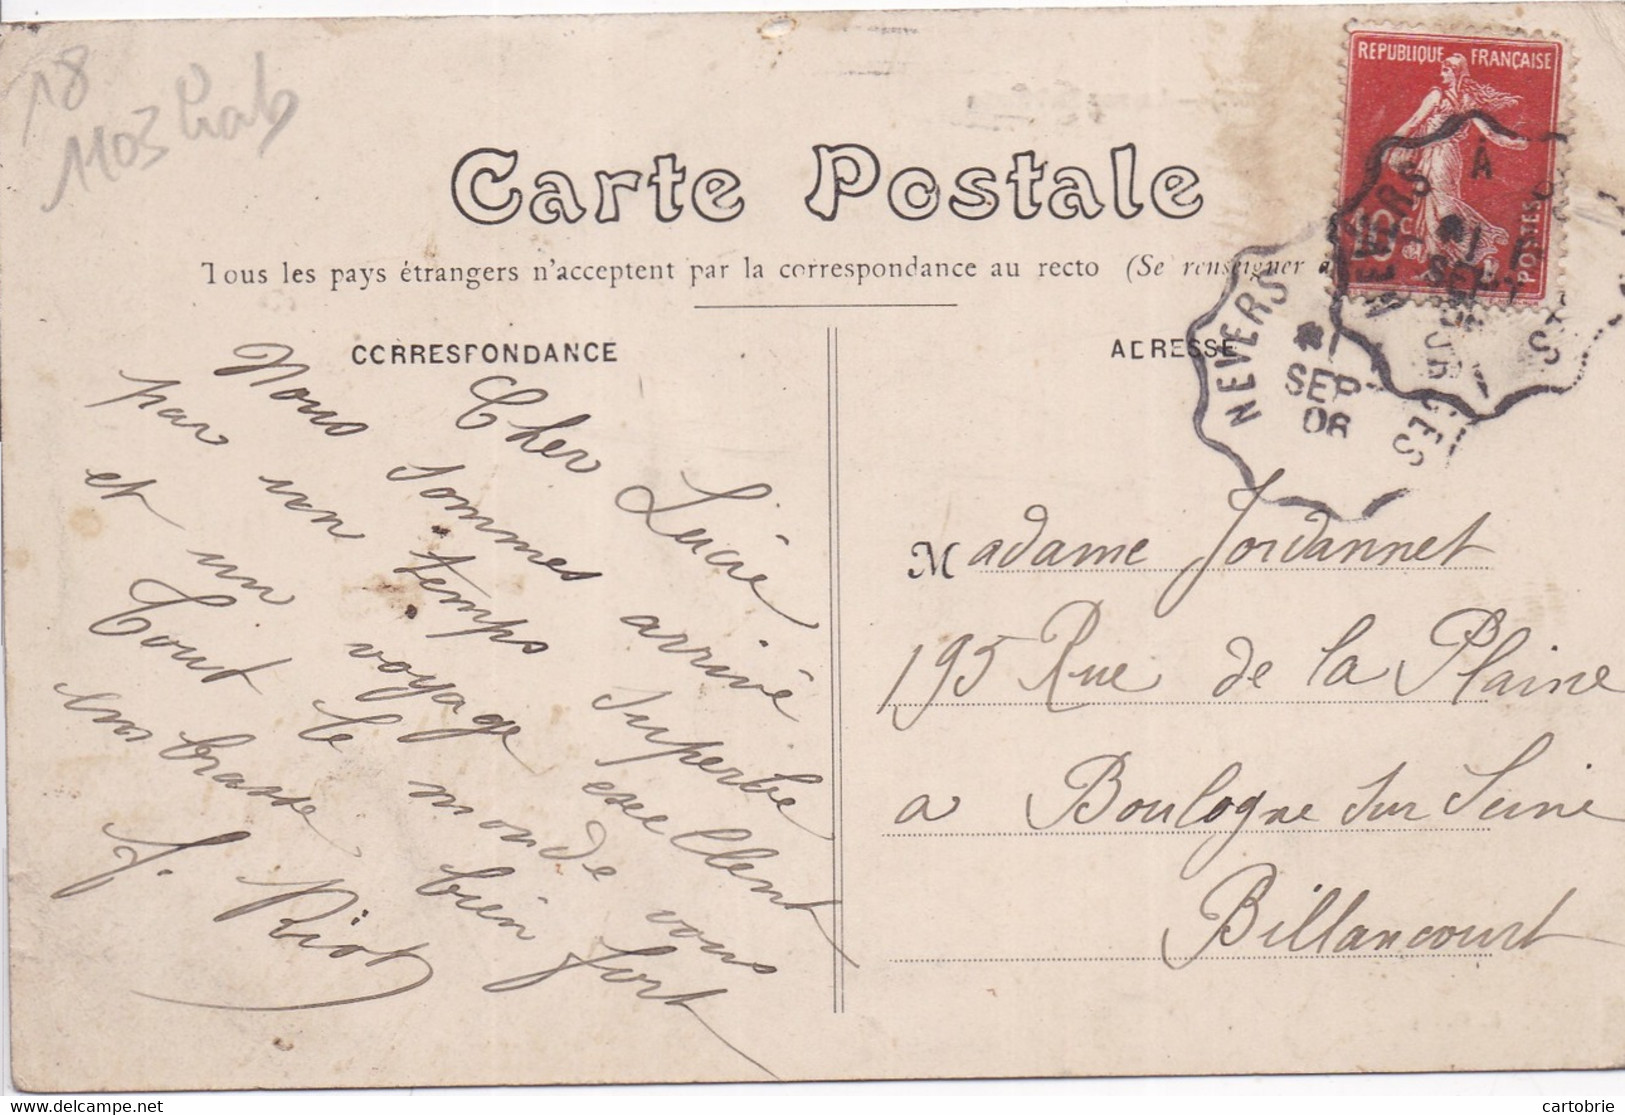 18
1103
REPUBLIQUE FRANÇAISE
10c
POSTES
Carte Postale
Tous les pays étrangers n'acceptent par la correspondance au recto (Se renseigner
CORRESPONDANCE
ADRESSE
NEVERS À
SEP
NEVERS
SEP
06
Cher Lucie
Nous sommes arrivé
par un temps superbe
et un voyage exellent
Tout le monde vous
embrasse bien fort
J. Riot
Madame Jordannet
195 Rue de la Plaine
a Boulogne sur Seine
Billancourt
delcampe.net
cartobrie